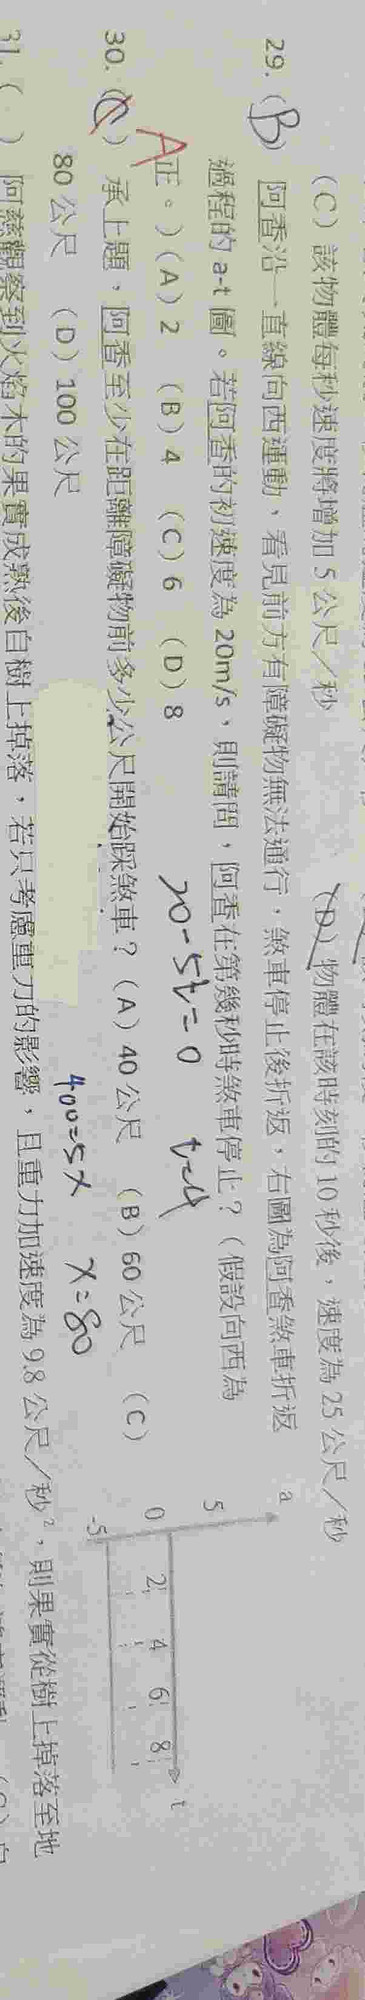 (C) 該物體每秒速度將增加 5 公尺／秒 (D) 物體在該時刻的 10 秒後，速度為 25 公尺／秒
29. (B) 阿香沿一直線向西運動，看見前方有障礙物無法通行，煞車停止後折返，右圖為阿香煞車折返
過程的 a-t 圖。若阿香的初速度為 20m/s，則請問，阿香在第幾秒時煞車停止？（假設向西為
正。）(A) 2 (B) 4 (C) 6 (D) 8
20-5t=0 t=4
A
30. (C) 承上題，阿香至少在距離障礙物前多少公尺開始踩煞車？(A) 40 公尺 (B) 60 公尺 (C)
80 公尺 (D) 100 公尺
400=5x x=80
a
5
0 2 4 6 8 t
-5
31. ( ) 阿慈觀察到火焰木的果實成熟後自樹上掉落，若只考慮重力的影響，且重力加速度為 9.8 公尺／秒²，則果實從樹上掉落至地